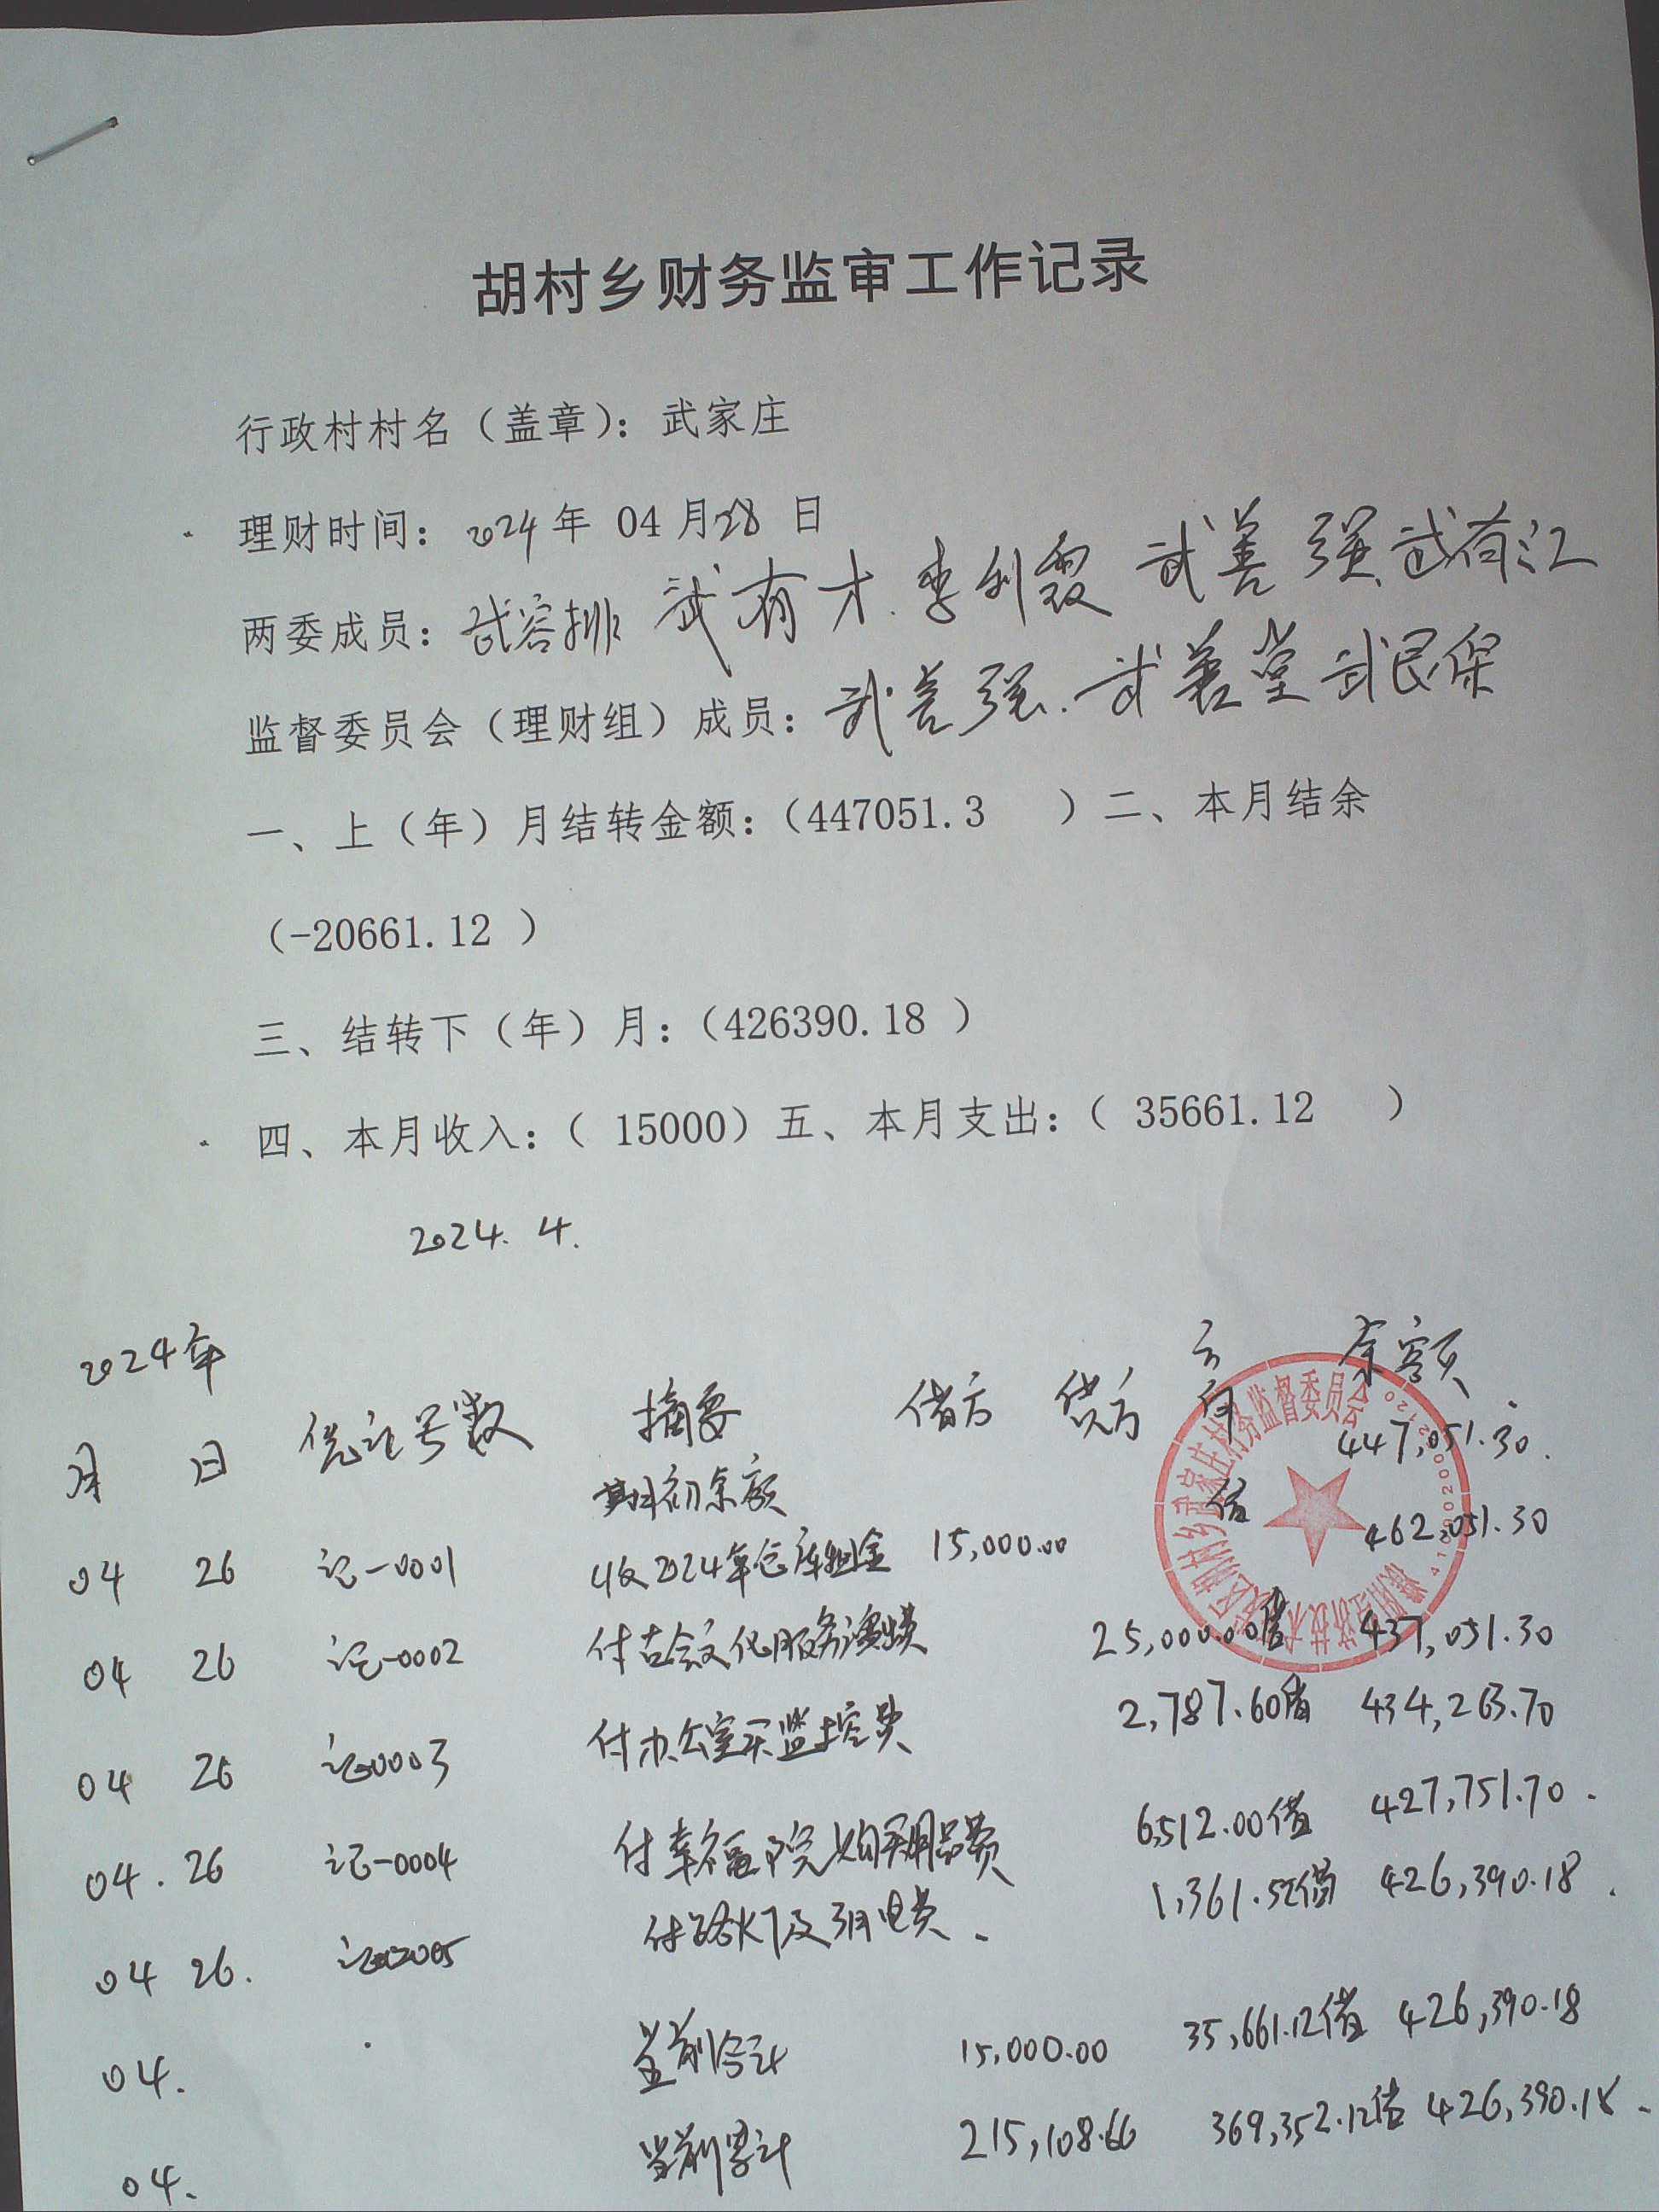 胡村乡财务监审工作记录
行政村村名（盖章）：武家庄
理财时间：2024年 04月28 日
两委成员：武容排 武有才.李利霞 武善强 武有江
监督委员会（理财组）成员：武善强.武善堂 武民保
一、上（年）月结转金额：（447051.3 ）二、本月结余
（-20661.12 ）
三、结转下（年）月：（426390.18 ）
四、本月收入：（ 15000）五、本月支出：（ 35661.12 ）
2024. 4.
2024年
月 日 凭证号数 摘要 借方 贷方 方向 余额
期初余额 借 447,051.30.
04 26 记-0001 收2024年仓库租金 15,000.00 462,051.30
04 26 记-0002 付古会文化服务演出费 25,000.00借 437,051.30
04 26 记0003 付办公室买监控费 2,787.60借 434,263.70
04.26 记-0004 付幸福院购买用品费 6,512.00借 427,751.70.
04 26. 记0005 付路灯及3月电费、 1,361.52借 426,390.18.
04. 当前合计 15,000.00 35,661.12借 426,390.18
04. 当前累计 215,108.66 369,352.12借 426,390.18.
胡村乡武家庄村务监督委员会